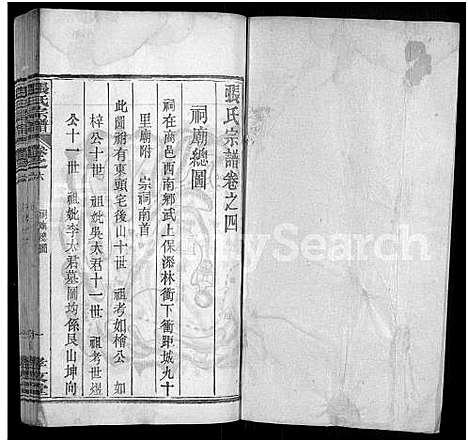 張氏宗譜卷之四
祠廟總圖
祠在商邑西南鄉武上保深林衝下衝距城九十
里廟附 崇祠南首
此圖祠有東頭宅後山十世 祖考如檜公 如
梓公十世 祖妣吳太君十一世 祖考世煜
公十一世 祖妣李太君墓圖均係艮山坤向
張氏宗譜
卷之
祠廟總圖
一
孝友堂
Search